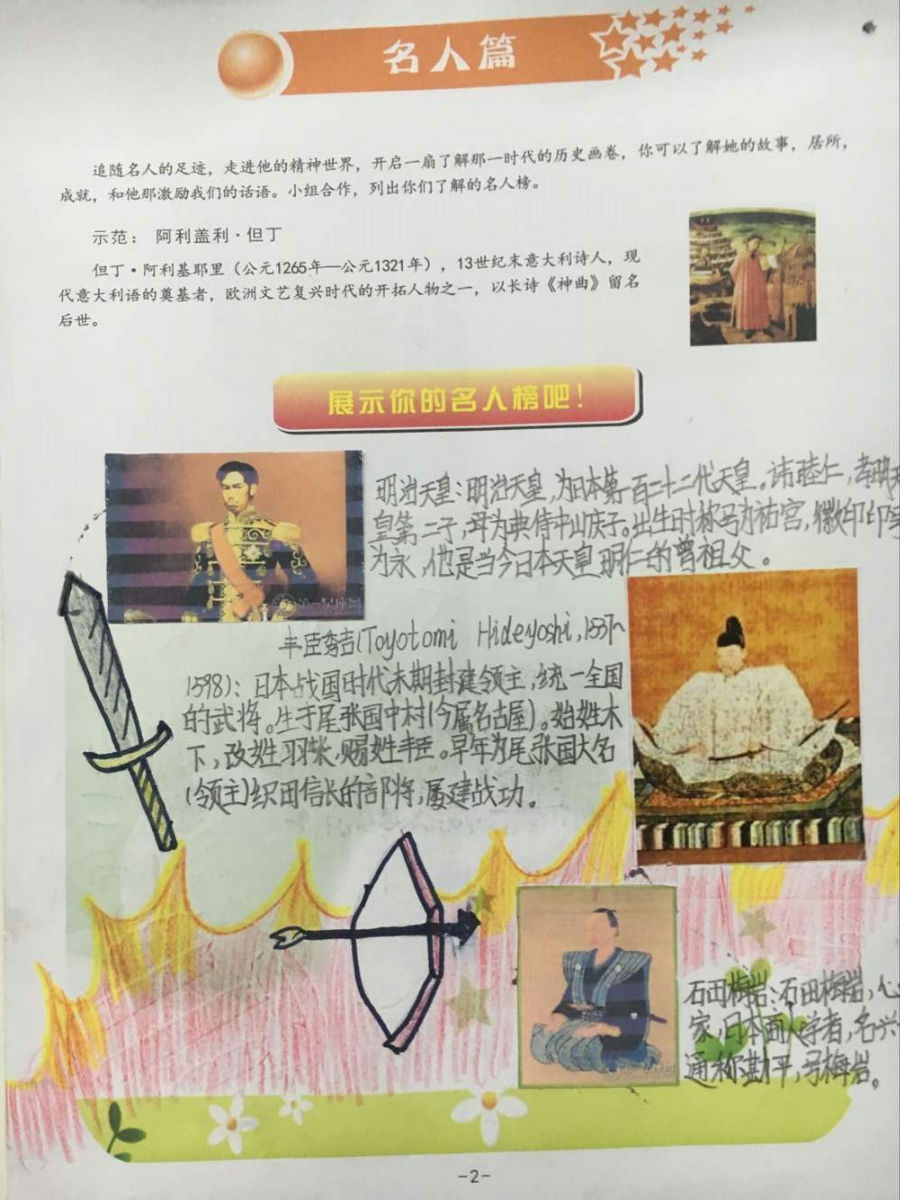 名人篇
追随名人的足迹，走进他的精神世界，开启一扇了解那一时代的历史画卷，你可以了解她的故事，居所，
成就，和他那激励我们的话语。小组合作，列出你们了解的名人榜。
示范： 阿利盖利·但丁
但丁·阿利基耶里（公元1265年—公元1321年），13世纪末意大利诗人，现
代意大利语的奠基者，欧洲文艺复兴时代的开拓人物之一，以长诗《神曲》留名
后世。
展示你的名人榜吧！
明治天皇：明治天皇，为日本第一百二十二代天皇。讳睦仁，孝明天
皇第二子，母为典侍中山庆子。出生时称号为祐宫，徽印印
为永，他是当今日本天皇明仁的曾祖父。
丰臣秀吉(Toyotomi Hideyoshi,
1598)：日本战国时代末期封建领主，统一全国
的武将。生于尾张国中村(今属名古屋)。始姓木
下，改姓羽柴，赐姓丰臣。早年为尾张国大名
(领主)织田信长的部将，屡建战功。
石田梅岩：石田梅岩，心
家，日本面人学者，名兴
通称勘平，号梅岩。
-2-